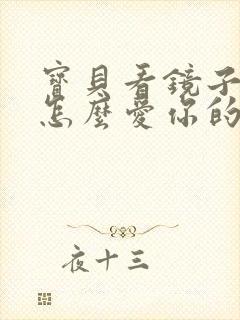 寶貝看鏡子
怎麼愛你的
夜十三